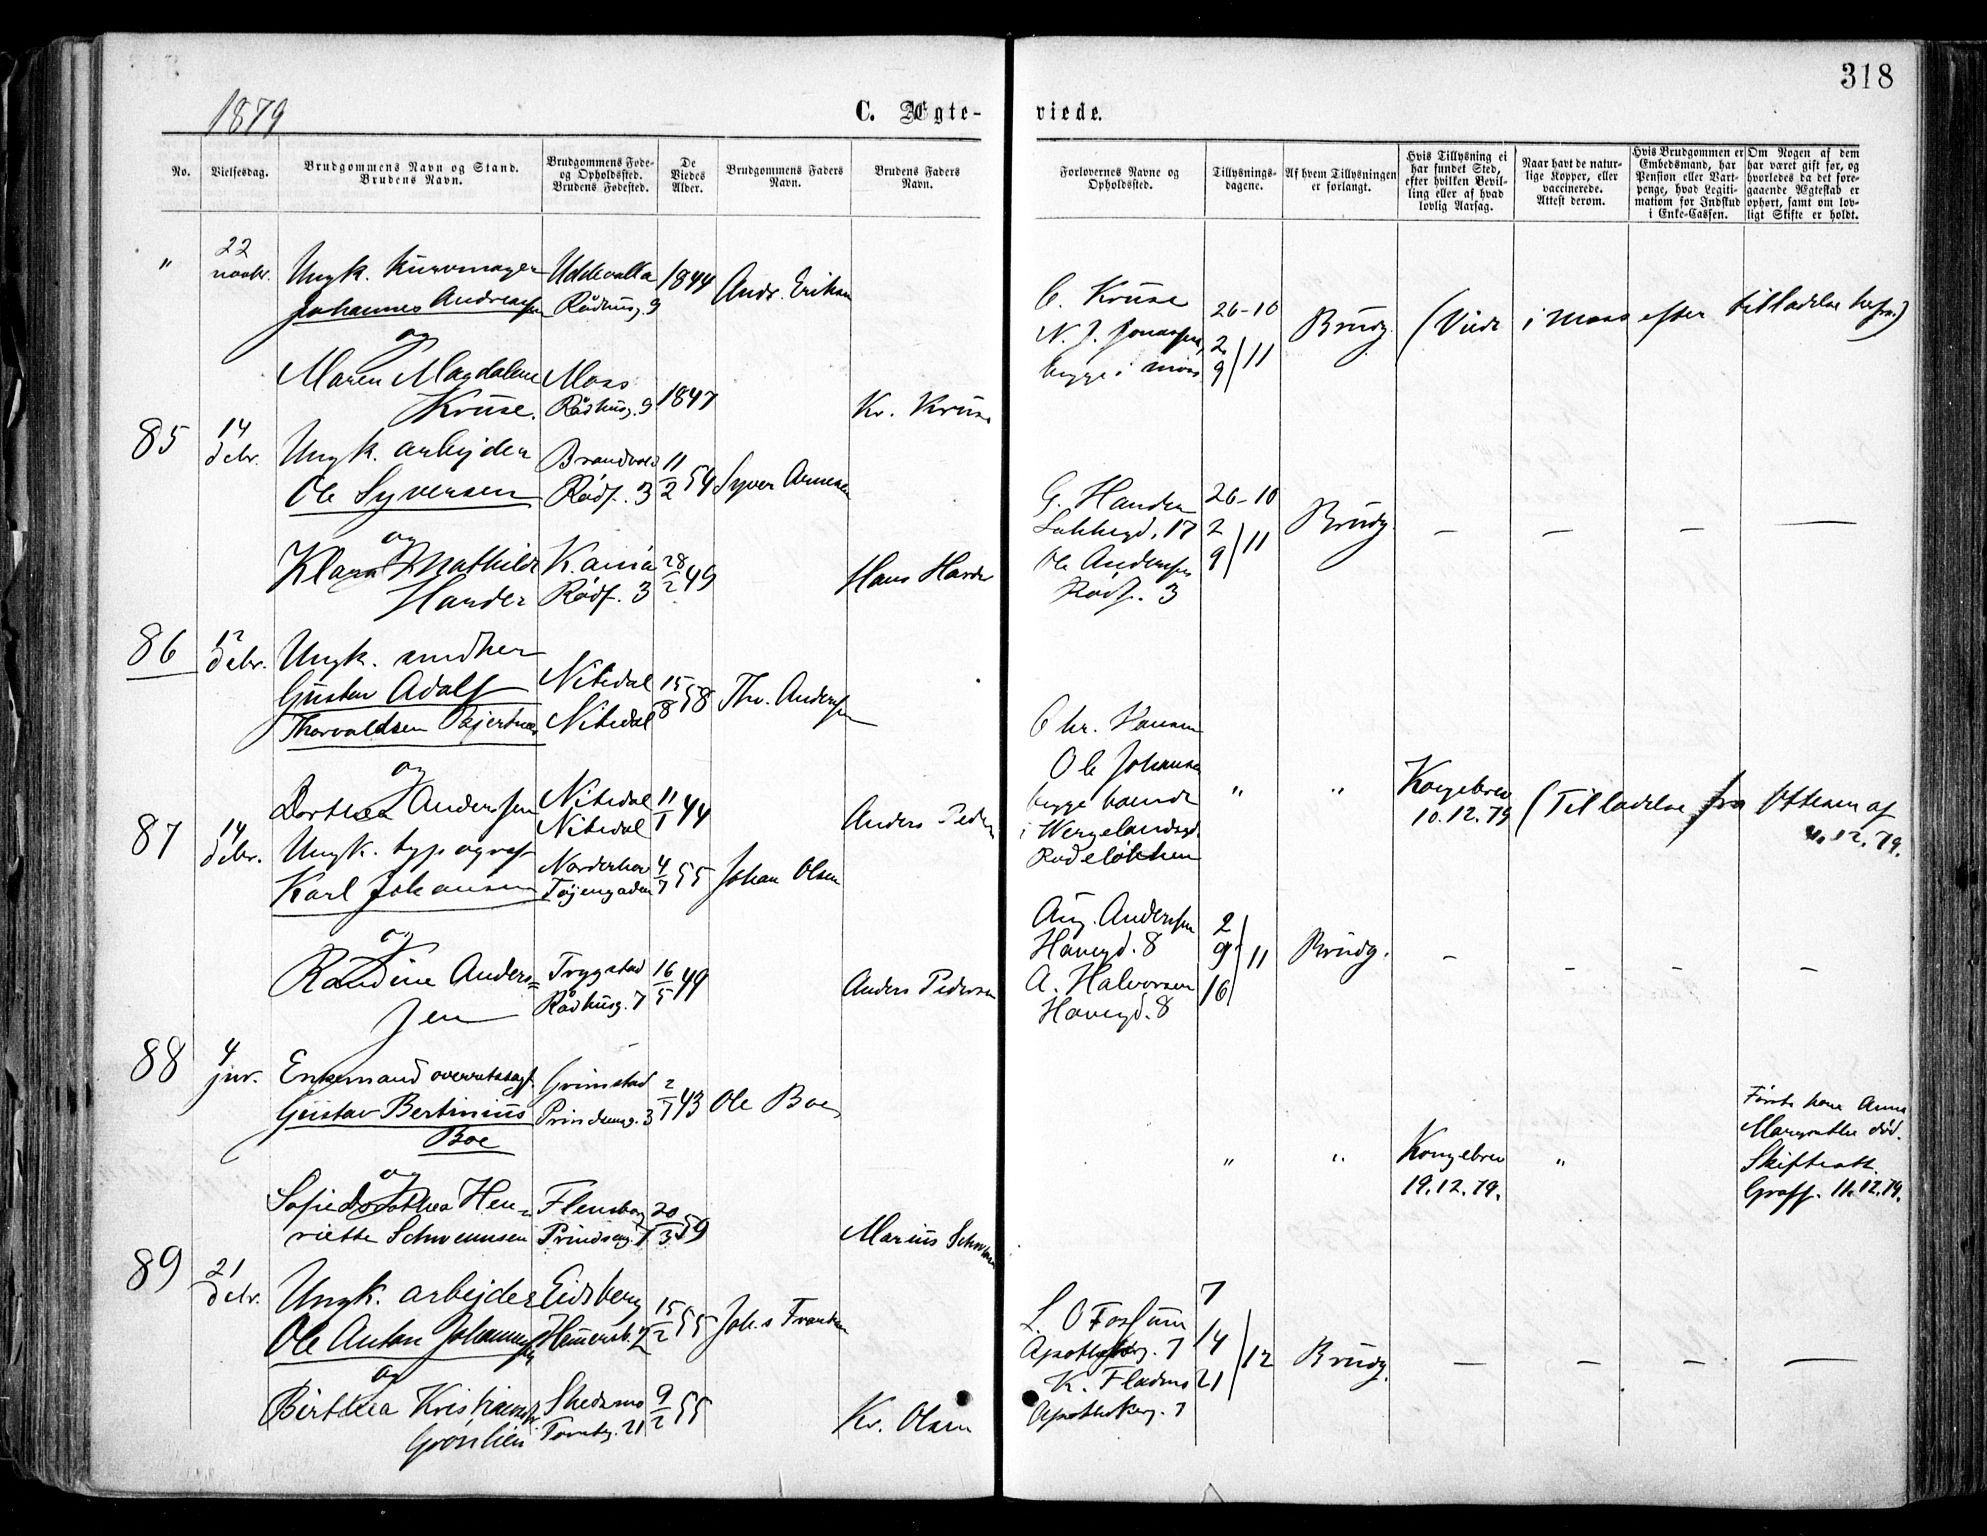 318
1879
C. Ægte-
viede.
No.
Vielsesdag.
Brudgommens Navn og Stand.
Brudens Navn.
Brudgommens Føde-
og Opholdssted.
Brudens Fødested.
De
Viedes
Alder.
Brudgommens Faders
Navn.
Brudens Faders
Navn.
Forlovernes Navne og
Opholdssted.
Tillysnings-
dagene.
Af hvem Tillysningen
er forlangt.
Hvis Tillysning ei
har fundet Sted,
efter hvilken Bevil-
ling eller af hvad
lovlig Aarsag.
Naar havt de natur-
lige Kopper, eller
vaccinerede.
Attest derom.
Hvis Brudgommen er
Embedsmand, har
Pension eller Vart-
penge, hvad Legiti-
mation for Indskud
i Enke-Cassen.
Om Nogen af dem
har været gift før, og
hvorledes da det fore-
gaaende Ægteskab er
ophørt, samt om lov-
ligt Skifte er holdt.
"
22
novbr.
Ungk. kurvmager
Johannes Andreassen
og
Maren Magdalene
Kruse.
Uddevalla
Rådhusg. 9
Moss
Rådhusg. 9
1844
1847
Andr. Eriksen
Kr. Kruse
C. Kruse
N. J. Jonassen,
begge i Moss
26-10
2
9/11
Brudg.
(Viede i Moss efter tilladelse herfra)
85
14
debr.
Ungk. arbejder
Ole Syversen
og
Klara Mathilde
Harder
Brandvold
Rødf. 3
K.ania
Rødf. 3
11/2 54
28/2 49
Syver Arnesen
Hans Harder
G. Hander
Lakkegd. 17
Ole Anderssen
Rødf. 3
26-10
2
9/11
Brudg.
— — — —
86
12
debr.
Ungk. snedker
Gustav Adolf
Thorvaldsen Bjertnæs
og
Dorthea Anderssen
Nitedal
Nitedal
Nitedal
Nitedal
15/8 58
11/1 44
Thv. Anderssen
Anders Peders
Chr. Hansen
Ole Johansen
begge boende
i Wergelandsgd.
Rodeløkken
"
"
Kongebrev
10.12.79
(Tilladelse fra Ottesen af
11.12.79.
87
14
debr.
Ungk. typograf
Karl Johansen
og
Randine Anders=
sen
Norderhov
Tøjengaden
Trygstad
Rådhusg. 7
4/7 55
16/5 49
Johan Olsen
Anders Pedersen
Aug. Anderssen
Havegd. 8
A. Halvorsen
Havegd. 8
2
9/11
16
Brudg.
- - - -
88
4
jnr.
Enkemand overretssagf.
Gustav Bertinius
Boe
og
Sofie Dorothea Hen-
riette Schwennsen
Grimstad
Prindsensg. 3
Flensborg
Prindsensg. 7
2/7 43
20/3 59
Ole Boe
Marius Schwen
"
"
Kongebrev
19.12.79.
"
Første kone Anna
Margrethe død.
Skifteatt.
Graff. 11.12.79.
89
21
debr.
Ungk. arbejder
Ole Anton Johannessen
og
Birthea Kristiansen
Grønlien
Eidsberg
Skedsmo
Tomteg. 21
15/2 55
9/2 55
Joh.s Frantzen
Kr. Olsen
L. O Fossum
Apothekerg. 7
K. Fladens
Apothekerg. 7
7
14/12
21
Brudg.
— — — —